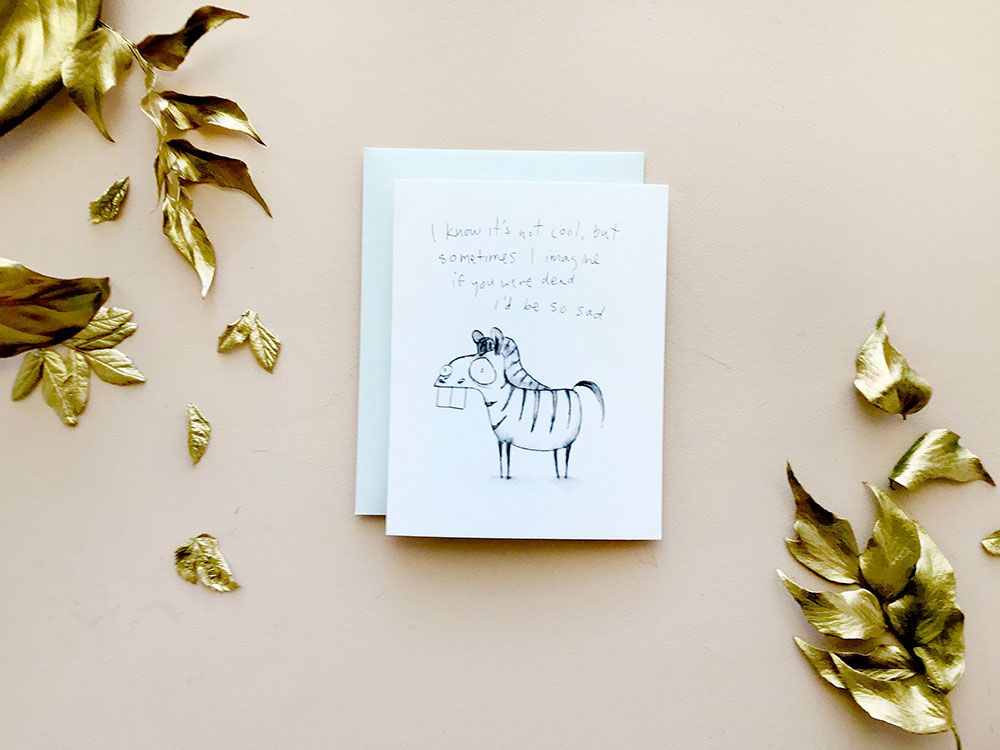 I know it's not cool, but
sometimes I imagine
if you were dead.
I'd be so sad.